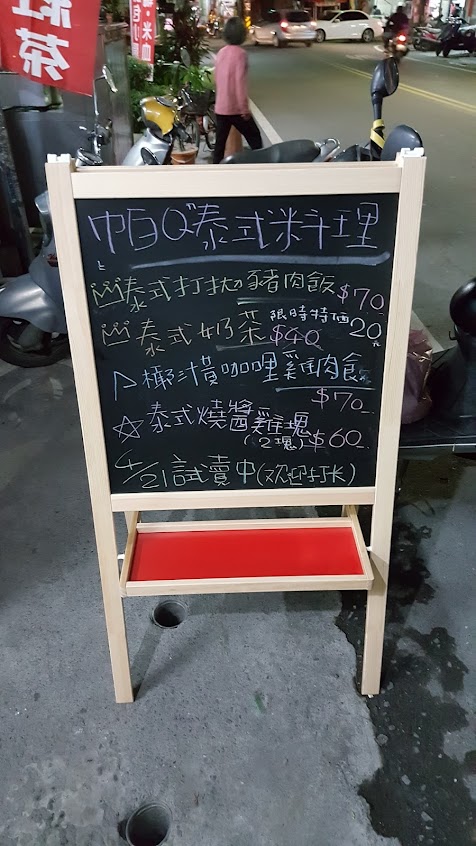 紅茶
米血
帕Q泰式料理
泰式打拋豬肉飯$70
限時特價
泰式奶茶$40 20元
椰汁黃咖哩雞肉飯
$70
泰式燒醬雞塊
(2塊)$60
4/21試賣中(欢迎打扰)